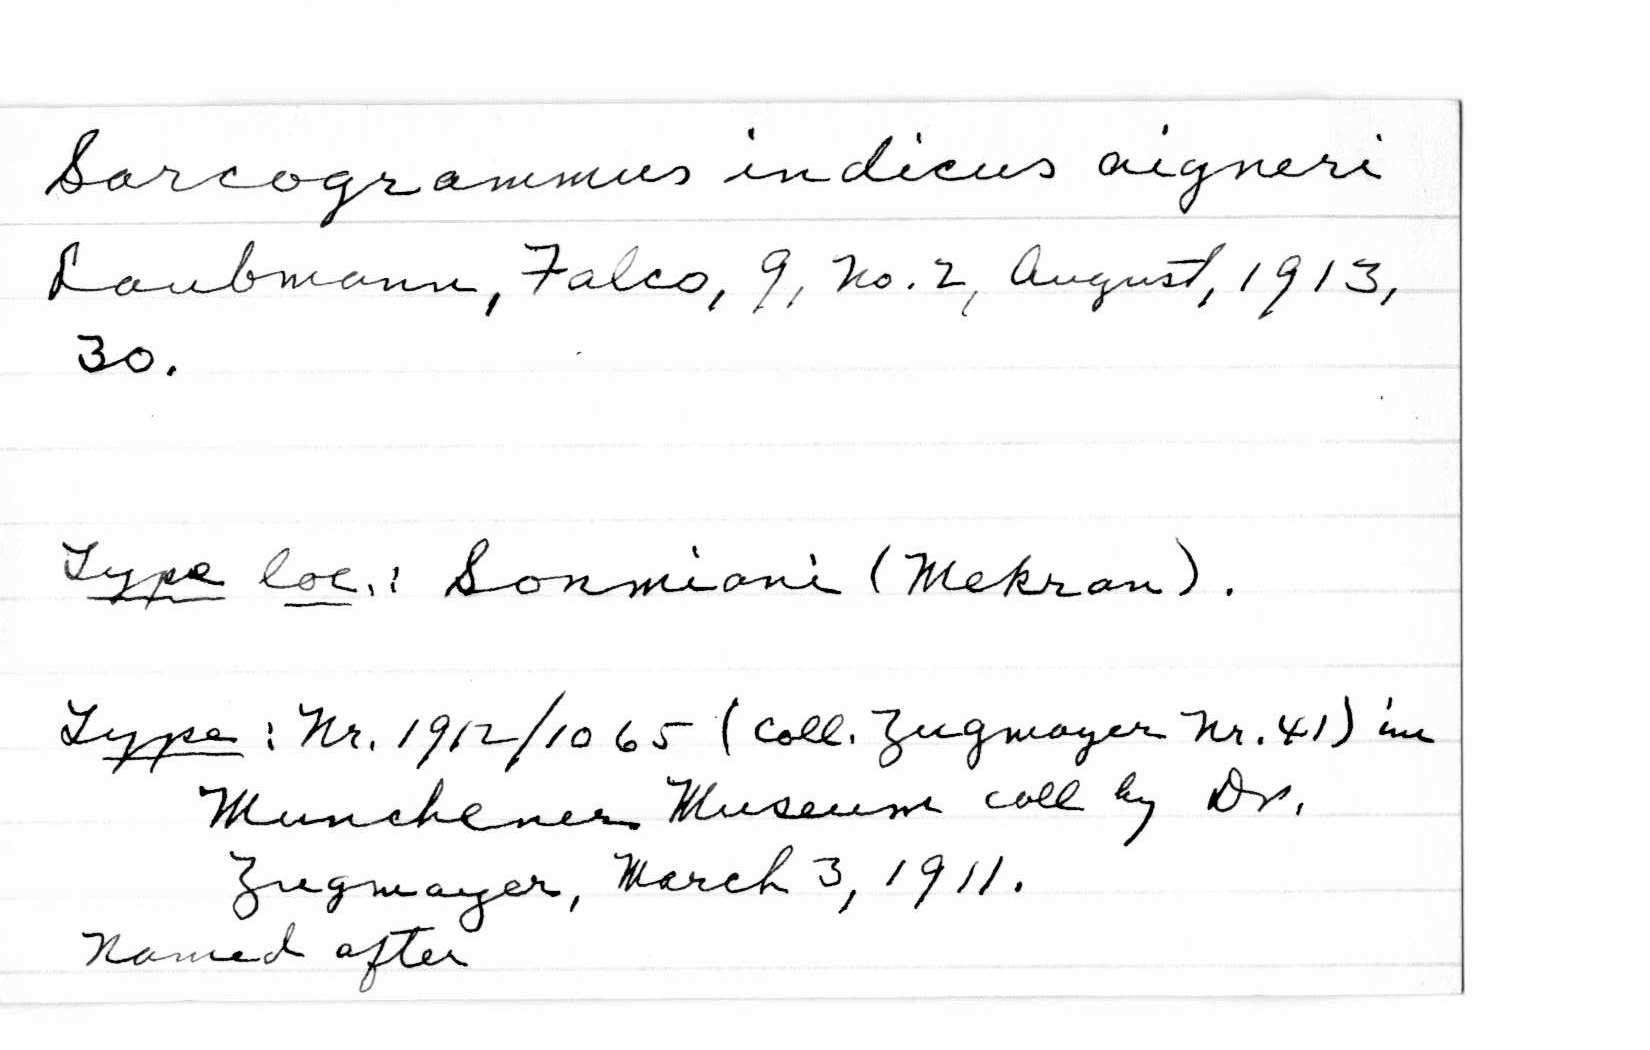 Sarcogrammus indicus aigneri
Laubmann, Falco, 9, No. 2, August, 1913,
30.
Type loc.: Sonmiani (Mekran).
Type: Nr. 1912/1065 (coll. Zugmayer Nr. 41) im
Munchener Museum coll by Dr.
Zugmayer, March 3, 1911.
Named after